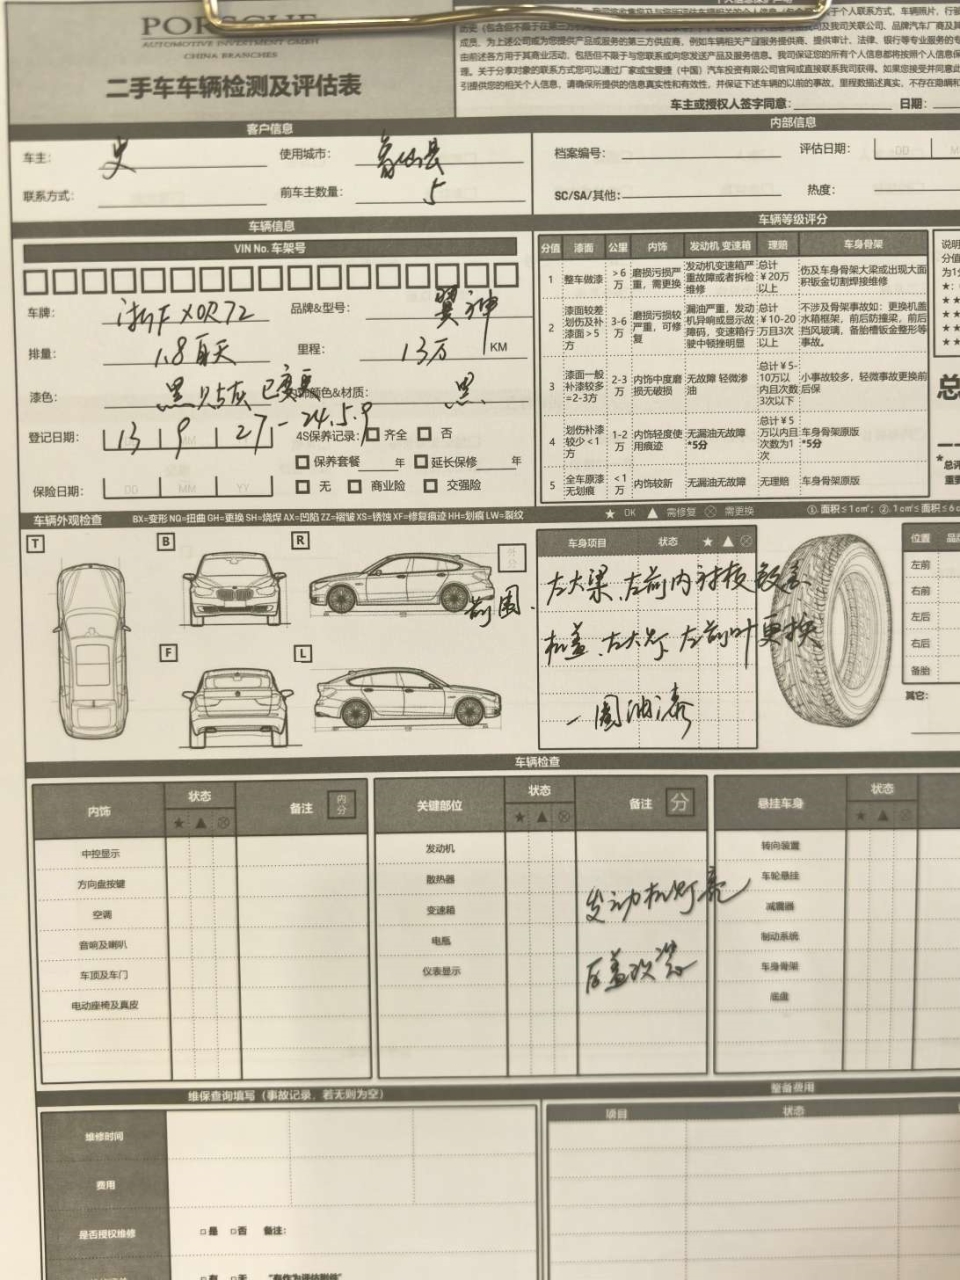 PORSCHE
AUTOMOTIVE INVESTMENT GMBH
CHINA BRANCHES
二手车车辆检测及评估表
成员、为上述公司或为您提供产品或服务的第三方供应商，例如车辆相关产品服务提供商、提供审计、法律、银行等专业服务的专
由前述各方用于其商业活动，包括但不限于与您联系或向您发送产品及服务信息。我司保证您的所有个人信息都将按照个人信息保
理。关于分享对象的联系方式您可以通过厂家或宝爱捷（中国）汽车投资有限公司官网或直接联系我司获得。如果您接受并同意此
引提供您的相关个人信息，请确保所提供的信息真实性和有效性，并保证下述车辆的以前的事故，里程数描述真实，不存在隐瞒和
车主或授权人签字同意： 日期：
客户信息 内部信息
车主： 史 使用城市： 象山县 档案编号： 评估日期：
联系方式： 前车主数量： 5 SC/SA/其他： 热度：
车辆信息 车辆等级评分
VIN No. 车架号
车牌： 浙F X0R72 品牌&型号： 翼神
排量： 1.8 自天 里程： 13万 KM
漆色： 黑 内饰颜色&材质： 黑
登记日期： 13 9 27 - 24.5.9 4S保养记录： 齐全 否
保养套餐 年 延长保修 年
保险日期： DD MM YY 无 商业险 交强险
分值 漆面 公里 内饰 发动机 变速箱 理赔 车身骨架
1 整车做漆 >6万 磨损污损严重，需更换 发动机变速箱严重故障或者拆检维修 总计￥20万以上 伤及车身骨架大梁或出现大面积钣金切割焊接维修
2 漆面较差划伤及补漆面>5方 3-6万 磨损污损较严重，可修复 漏油严重，发动机异响或显示故障码，变速箱行驶中顿挫明显 总计￥10-20万且3次以上 不涉及骨架事故如：更换机盖水箱框架，前后防撞梁，前后挡风玻璃，备胎槽钣金整形等事故。
3 漆面一般补漆较多=2-3方 2-3万 内饰中度磨损无破损 无故障 轻微渗油 总计￥5-10万以内且次数3次以下 小事故较多，轻微事故更换前后保
4 划伤补漆较少<1方 1-2万 内饰轻度使用痕迹 无漏油无故障*5分 总计￥5万以内且次数为1次 车身骨架原版*5分
5 全车原漆无划痕 <1万 内饰较新 无漏油无故障 无理赔 车身骨架原版
说明
分值
为1分
总
总评
重要
车辆外观检查 BX=变形 NQ=扭曲 GH=更换 SH=烧焊 AX=凹陷 ZZ=褶皱 XS=锈蚀 XF=修复痕迹 HH=划痕 LW=裂纹 ★ OK ▲ 需修复 ⊗ 需更换 ①. 面积≤1c㎡；②. 1c㎡≤面积≤6c
T B R F L
车身项目 状态 ★ ▲ ⊗
前围、左大梁、左前内衬板钣金
机盖、左大灯、左前叶更换
一圈油漆
位置 品牌
左前
右前
左后
右后
备胎
其它：
车辆检查
内饰 状态 备注 内分 ★ ▲ ⊗
中控显示
方向盘按键
空调
音响及喇叭
车顶及车门
电动座椅及真皮
关键部位 状态 备注 分 ★ ▲ ⊗
发动机
散热器
变速箱
电瓶
仪表显示
发动机灯亮
后盖改装
悬挂车身 状态 ★ ▲ ⊗
转向装置
车轮悬挂
减震器
制动系统
车身骨架
底盘
维保查询填写（事故记录，若无则为空） 整备费用
维修时间 项目 状态
费用
是否授权维修 是 否 备注：
有 无 "有作为评估附件"